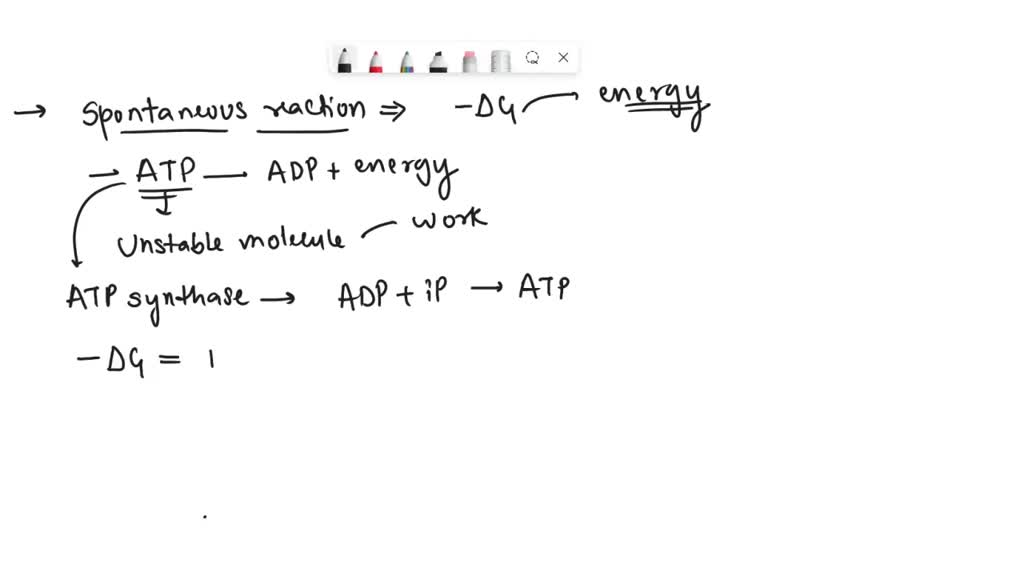 → Spontaneous reaction ⇒ -ΔG energy
→ ATP — ADP + energy
Unstable molecule work
ATP synthase → ADP + iP → ATP
-ΔG = 1